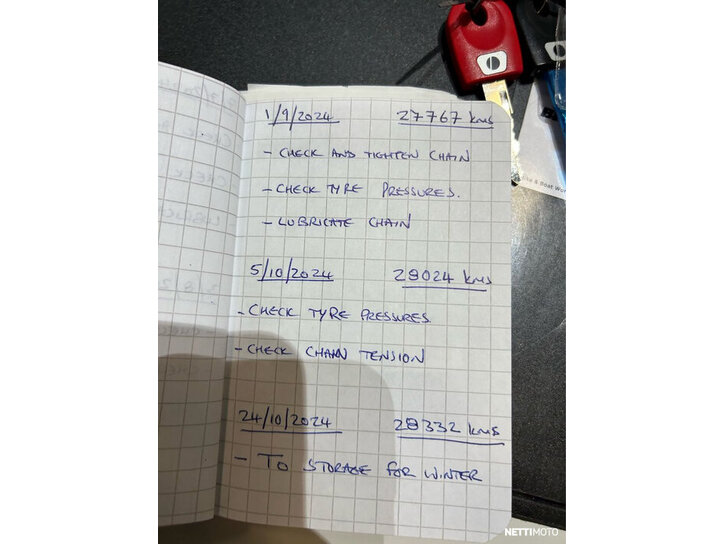 1/9/2024 27767 kms
- CHECK AND TIGHTEN CHAIN
- CHECK TYRE PRESSURES.
- LUBRICATE CHAIN
5/10/2024 28024 kms
- CHECK TYRE PRESSURES
- CHECK CHAIN TENSION
24/10/2024 28332 kms
- TO STORAGE FOR WINTER
& Boat Wor
NETTIMOTO